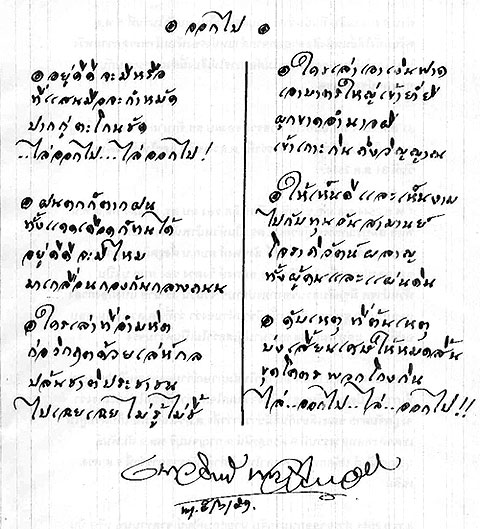 ๏ ออกไป ๏
๏ อยู่ดีดีจะมีหรือ
ที่แสนมือจะกำหมัด
ปากกู่ตะโกนชัด
...ไล่ออกไป...ไล่ออกไป!
๏ ฝนตกก็ตากฝน
ทั้งแดดเดือดก็ทนได้
อยู่ดีดีจะมีไหม
มาเกลื่อนกองกันกลางถนน
๏ ใครเล่าที่อำมหิต
ก่อวิกฤตด้วยเล่ห์กล
ปล้นชาติประชาชน
ไปเฉยเฉย ไม่รู้ไม่ชี้
๏ ใครเล่าเอาเงินฟาด
เอาบาตรใหญ่เข้าย่ำยี
ผูกขาดอำนาจผี
เข้าเกาะกินถึงวิญญาณ
๏ ให้เห็นดีและเห็นงาม
ไปกับทุนอันสามานย์
โจราภิวัตน์ผลาญ
ทั้งผู้คนและแผ่นดิน
๏ ดับเหตุ ที่ต้นเหตุ
บ่งเสี้ยนเศษให้หมดสิ้น
ขุดโคตรพวกโกงกิน
ไล่...ออกไป...ไล่...ออกไป!!